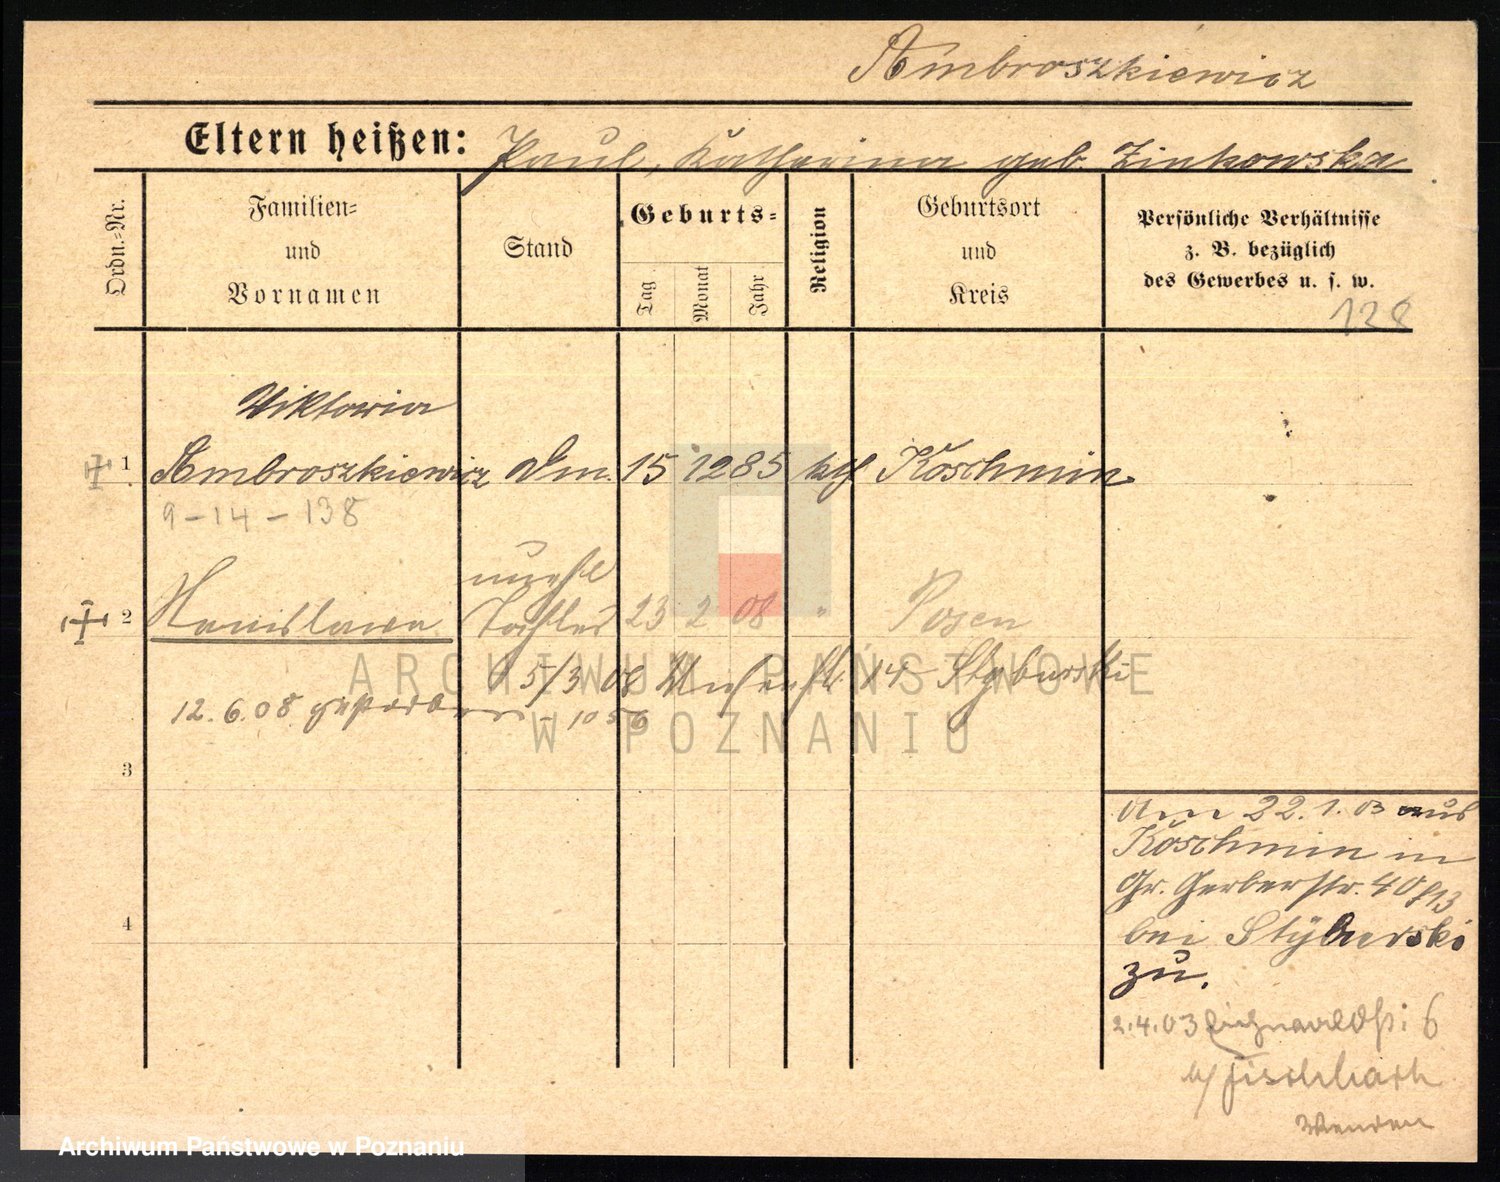 Ambroszkiewicz
Eltern heißen: Paul, Katharina geb. Zinkowska
Ordn.=Nr.
Familien=
und
Vornamen
Stand
Geburts=
Tag
Monat
Jahr
Religion
Geburtsort
und
Kreis
Persönliche Verhältnisse
z. B. bezüglich
des Gewerbes u. s. w.
128
Viktoria
1 Ambroszkiewicz Dm. 15 12 85 kth Koschmin
9-14-138
unehl
2 Stanislawa Tochter 23 2 08 " Posen
5/3 08 14 Styburski
12.6.08 gestorben - 1056
3
4
Am 22.1.03 aus
Koschmin in
Gr. Gerberstr. 40
bei Styburski
zu.
2.4.03 6
b/ Fischbach
Wenden
ARCHIWUM PAŃSTWOWE
W POZNANIU
Archiwum Państwowe w Poznaniu